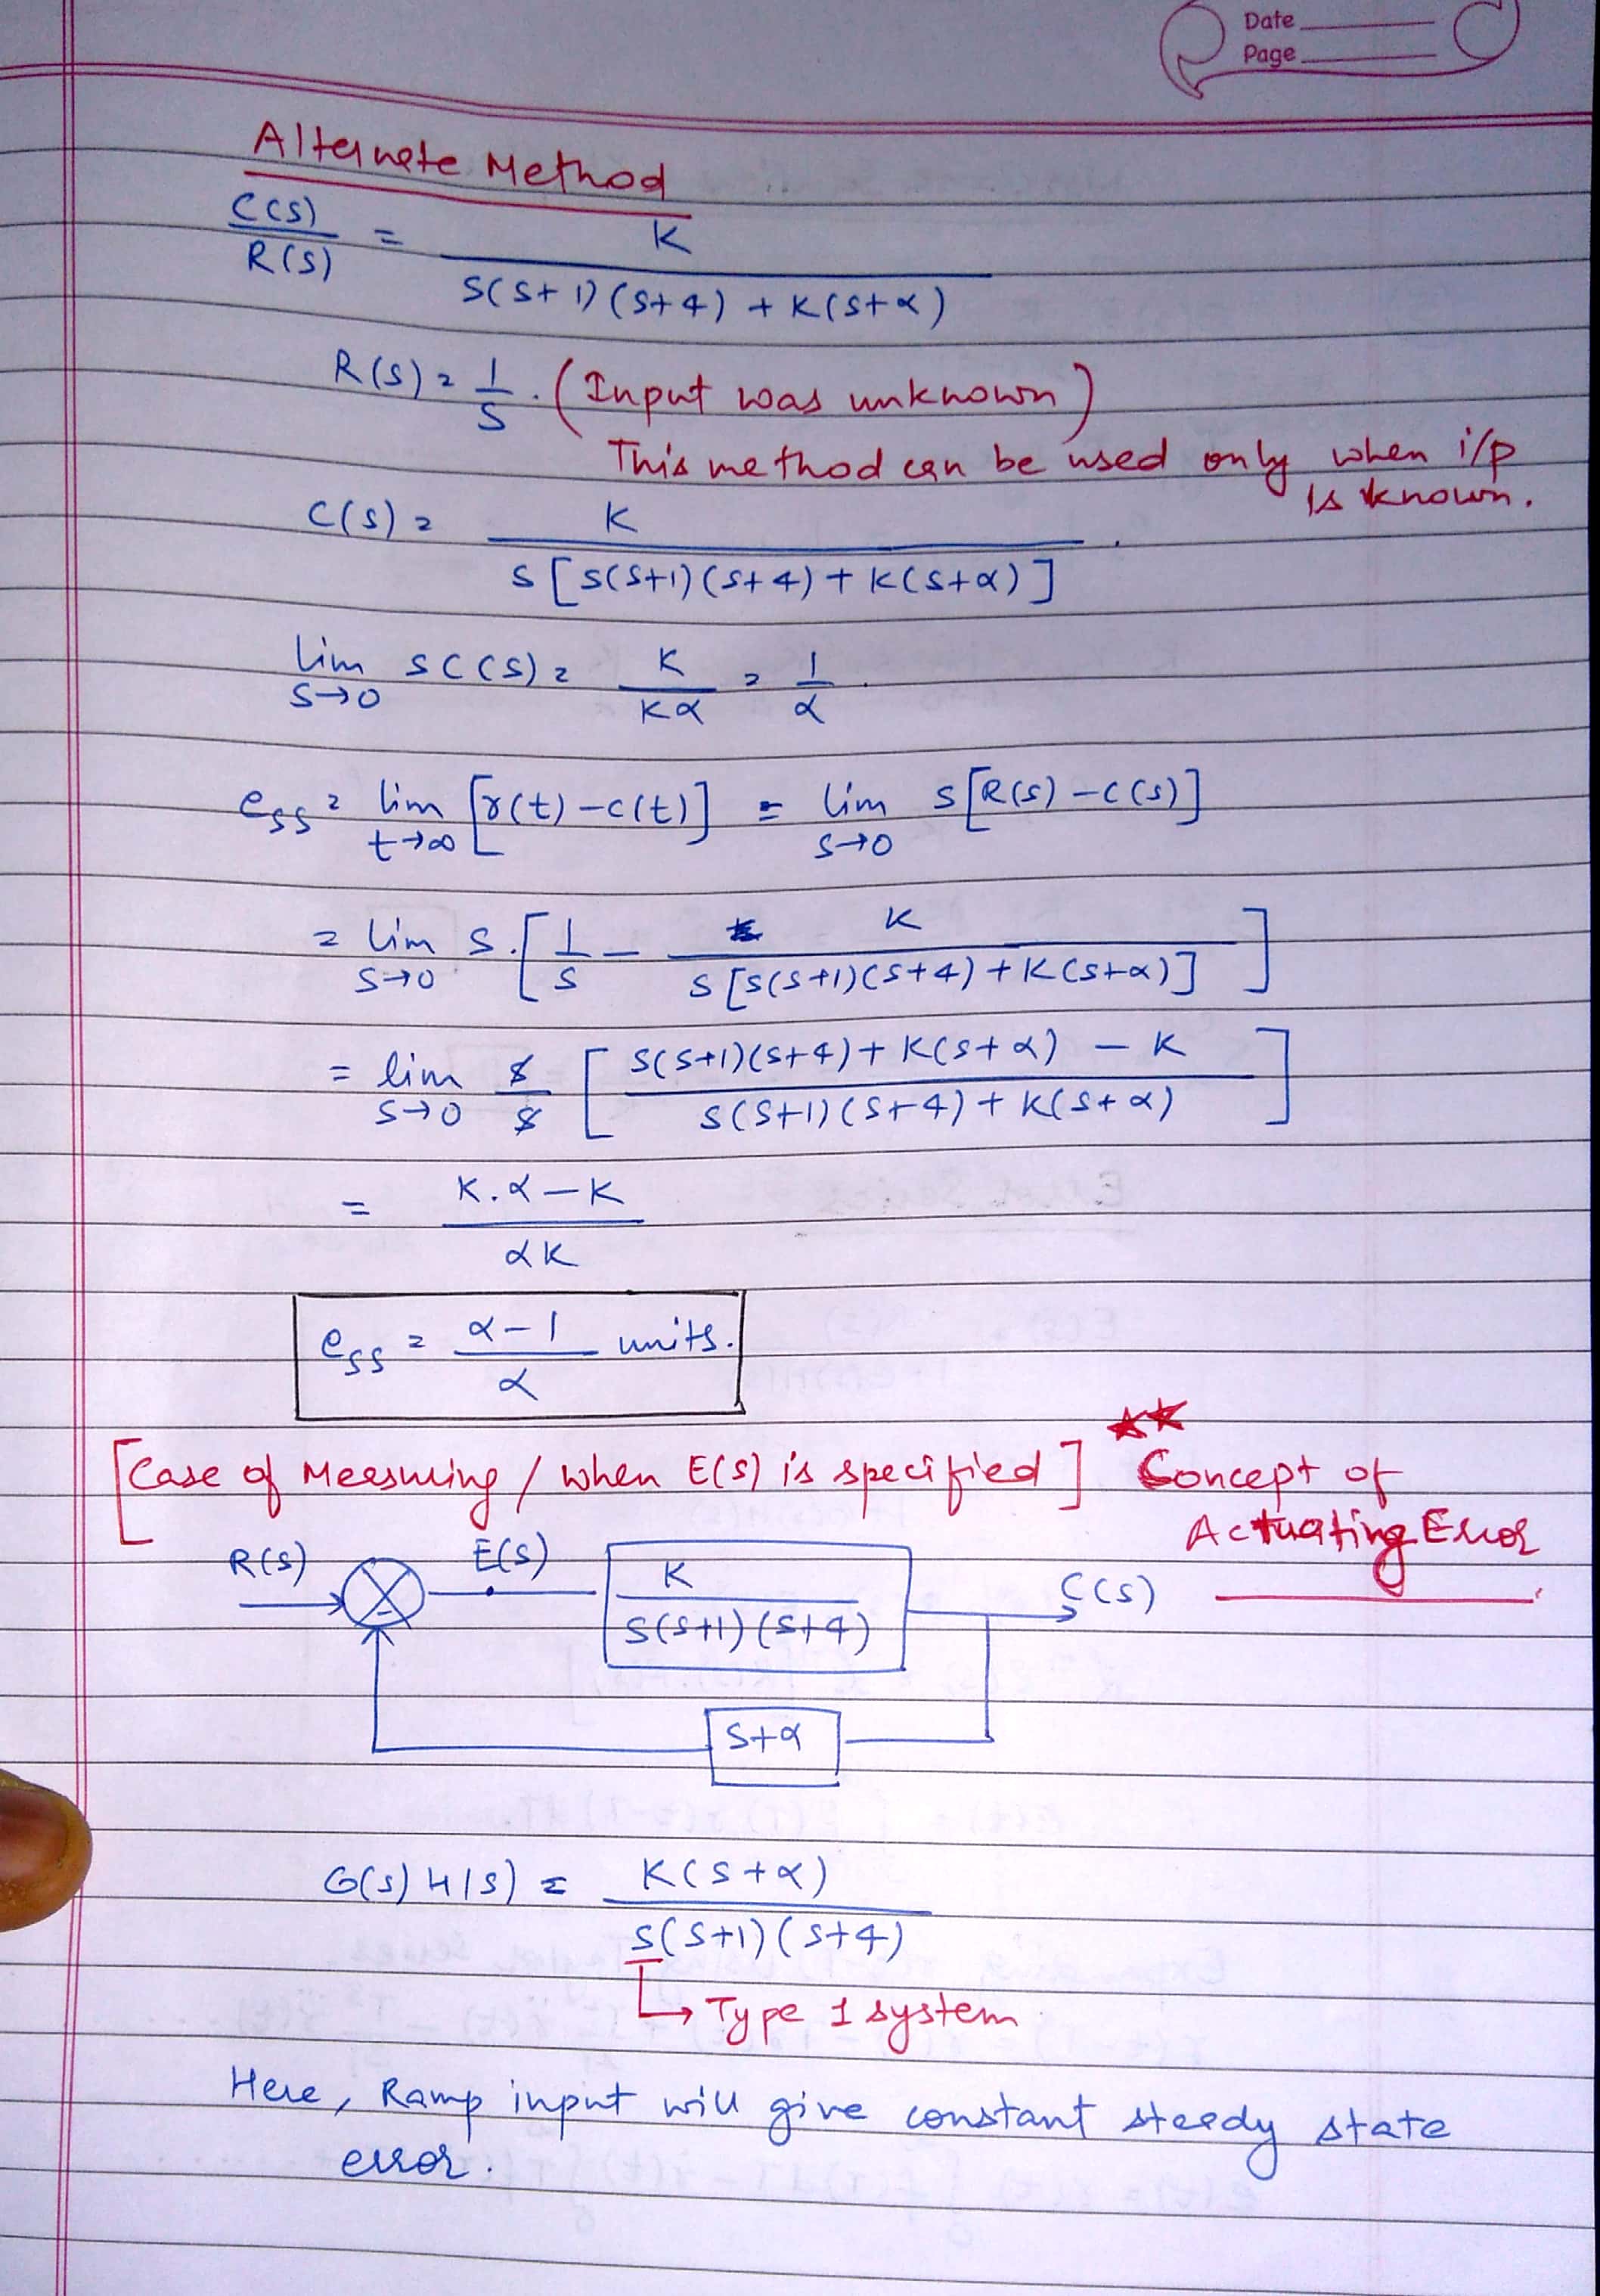 Date
Page
Alternate Method
C(s)/R(s) = K / s(s+1)(s+4) + K(s+α)
R(s) = 1/s . (Input was unknown)
This method can be used only when i/p
is known.
C(s) = K / s[s(s+1)(s+4) + K(s+α)] .
lim s→0 sC(s) = K/Kα = 1/α .
ess = lim t→∞ [r(t) - c(t)] = lim s→0 s[R(s) - C(s)]
= lim s→0 s.[1/s - K / s[s(s+1)(s+4) + K(s+α)]]
= lim s→0 s/s [s(s+1)(s+4) + K(s+α) - K / s(s+1)(s+4) + K(s+α)]
= K.α - K / αK
ess = α-1 / α units.
[Case of Measuring / when E(s) is specified] ★★ Concept of
Actuating Error
R(s) E(s) K / s(s+1)(s+4) C(s)
-
s+α
G(s)H(s) = K(s+α) / s(s+1)(s+4)
→ Type 1 system
Here, Ramp input will give constant steady state
error.